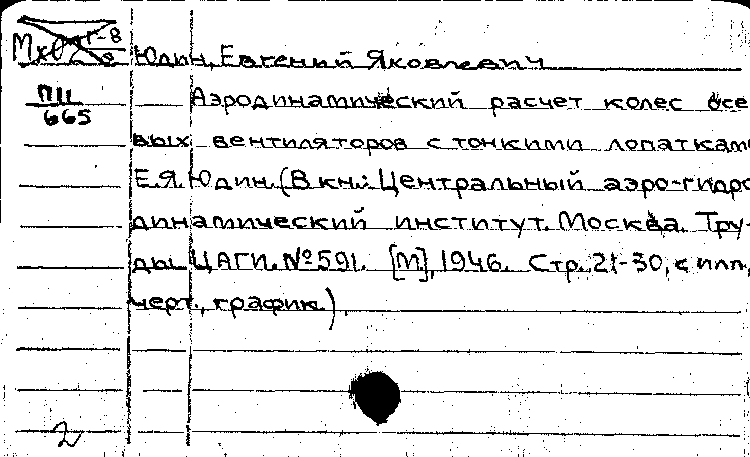 Юдин, Евгений Яковлевич
ПИ
665
Аэродинамический расчет колес осе
вых вентиляторов с тонкими лопаткам
Е.Я.Юдин. (В кн.: Центральный аэро-гидро
динамический институт. Москва. Тру-
ды ЦАГИ. №591. [М], 1946. Стр. 21-30, с илл.,
черт., график.).
2